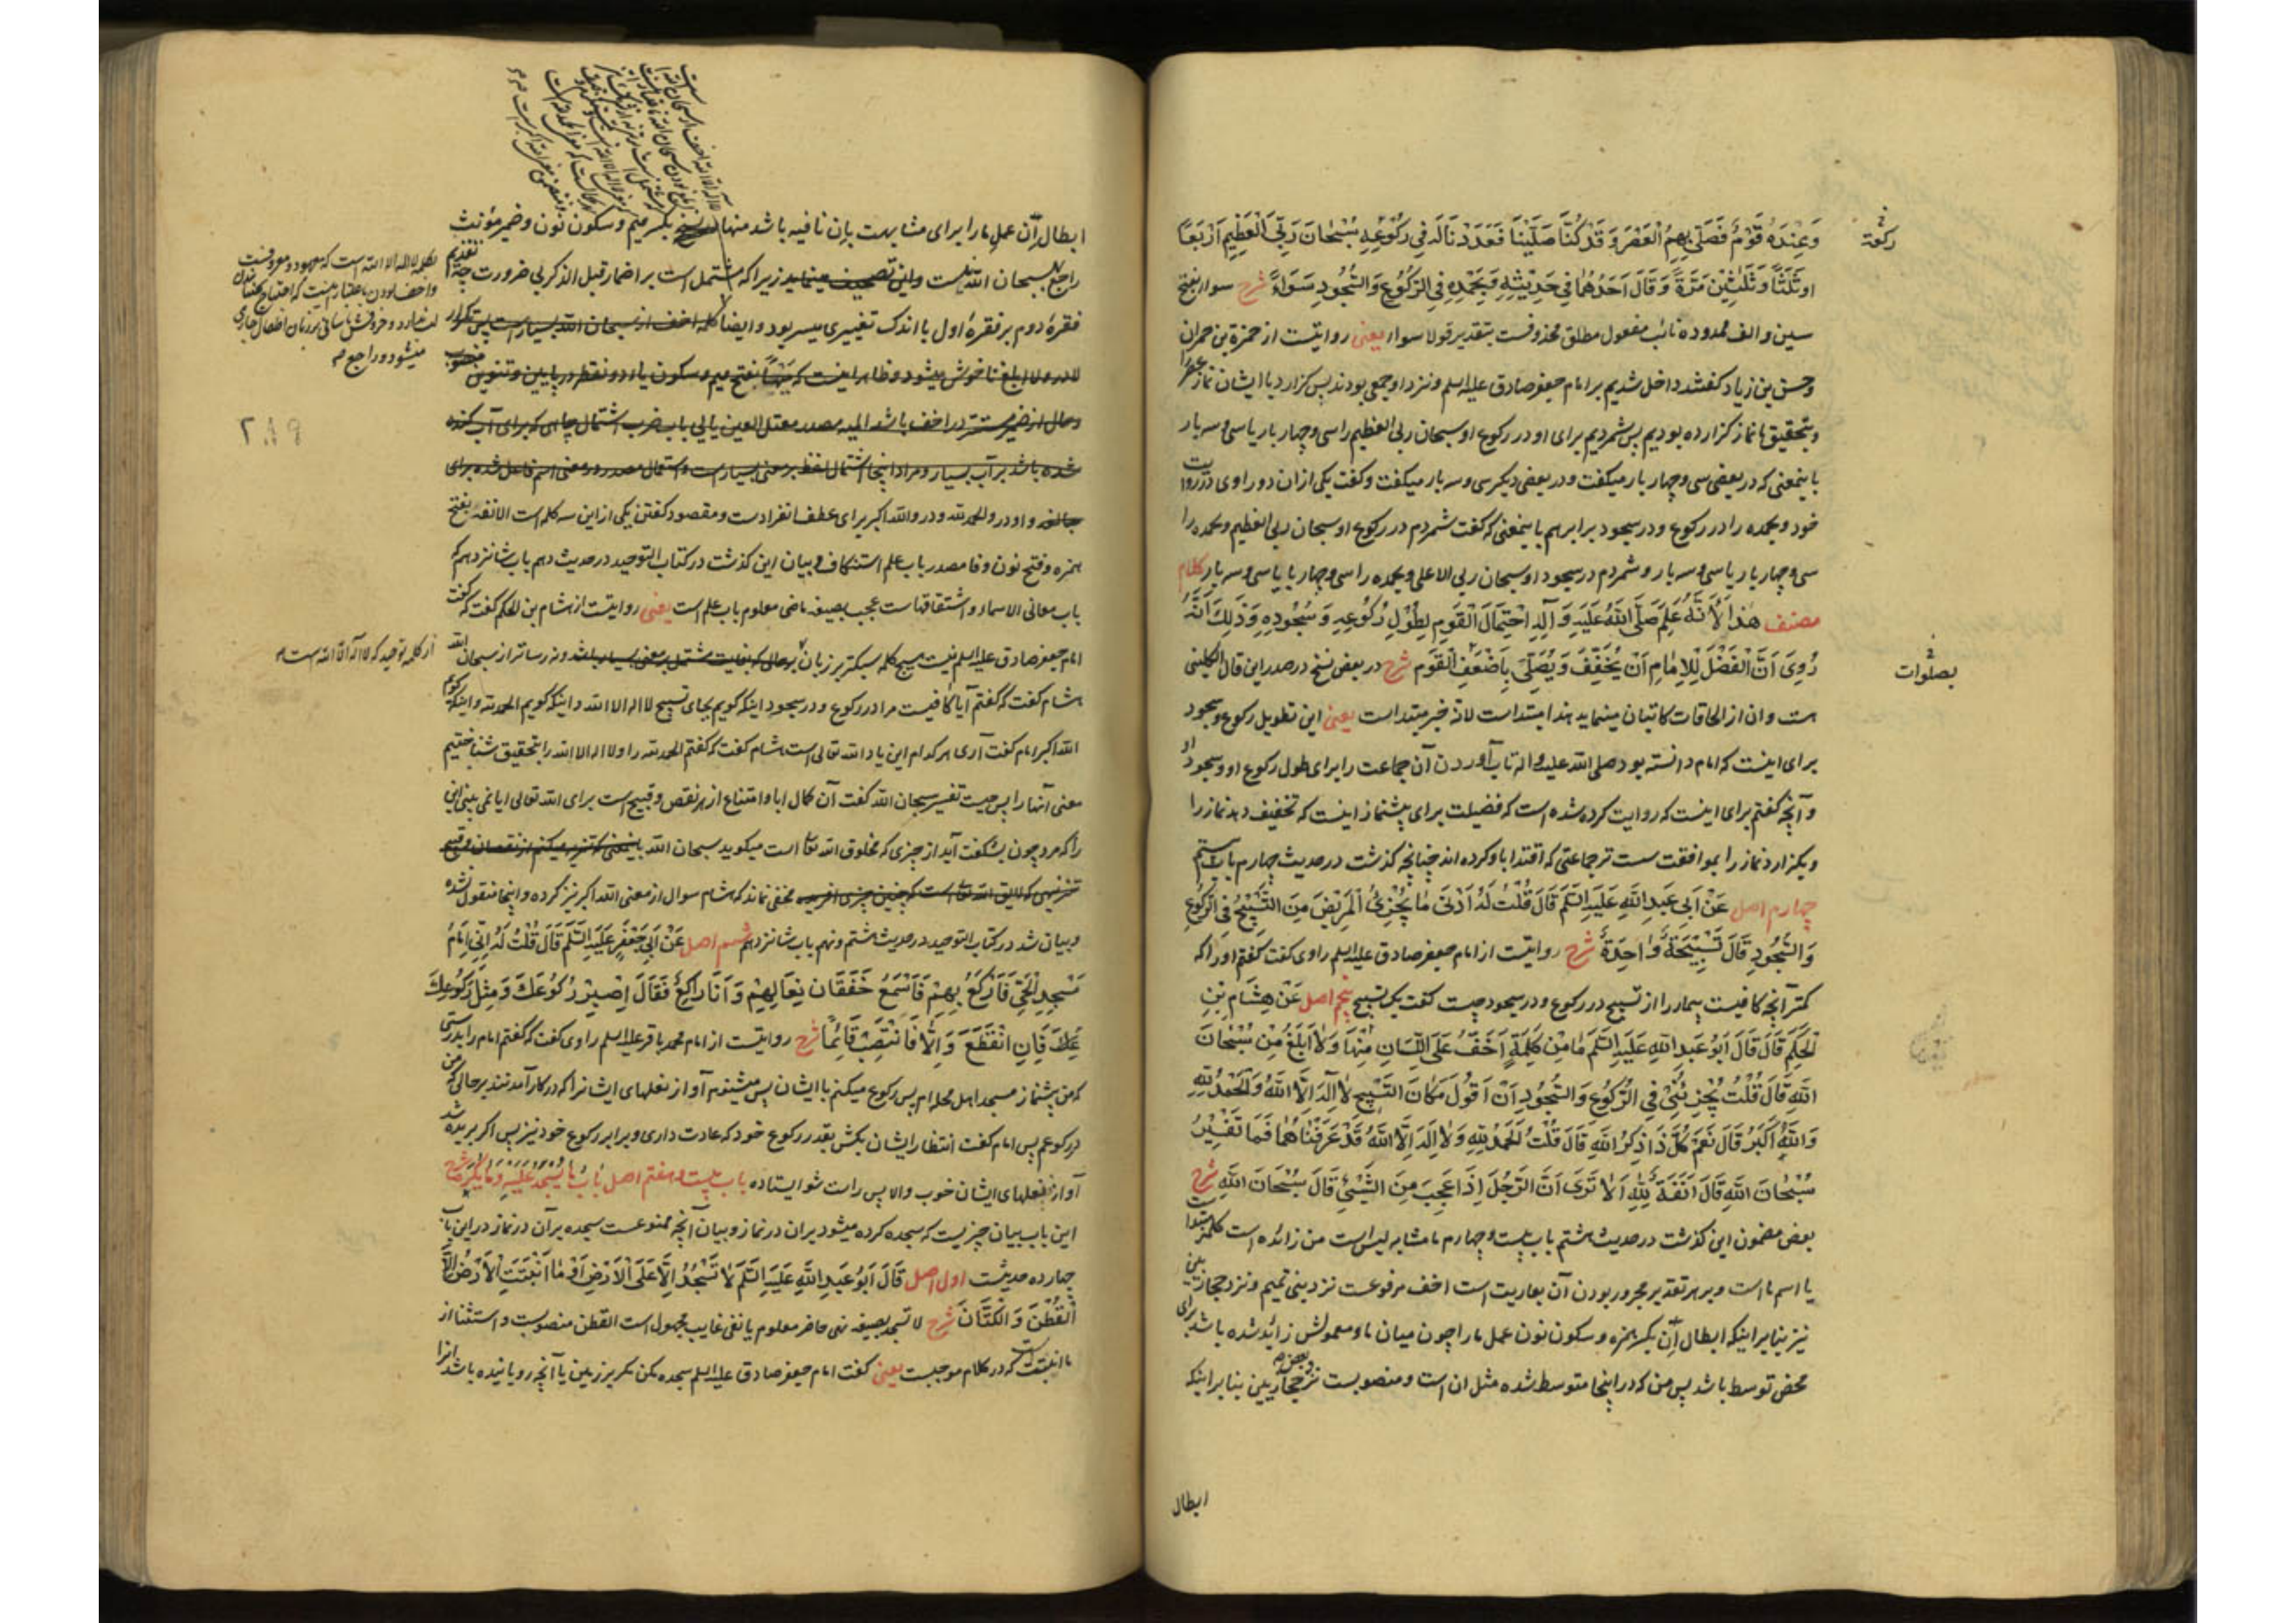 وَعِنْدَهُ قَوْمٌ فَصَلّٰى بِهِمُ الْعَصْرَ وَقَدْ كُنَّا صَلَّيْنَا فَعَدَدْنَا لَهُ فِي رُكُوعِهِ سُبْحَانَ رَبِّيَ الْعَظِيمِ اَرْبَعًا
اَوْ ثَلٰثًا وَثَلٰثِيْنَ مَرَّةً وَقَالَ اَحَدُهُمَا فِي حَدِيْثِهِ وَبِحَمْدِهِ فِي الرُّكُوعِ وَالسُّجُودِ سَوَاءً شرح سواء بفتح
سین و الف ممدوده نائب مفعول مطلق محذوفست بتقدیر قولا سواء یعنی روایتست از حمزة بن حمران
وحسن بن زیاد گفتند داخل شدیم بر امام جعفر صادق علیه السلم ونزد او جمعی بودند پس گزارد با ایشان نماز عصر را
وبتحقیق ما نماز گزارده بودیم پس شمردیم برای او در رکوع او سبحان ربی العظیم را سی وچهار بار یا سی وسه بار
باینمعنی که در بعضی سی وچهار بار میگفت ودر بعضی دیگر سی وسه بار میگفت وگفت یکی ازان دو راوی در روایت
خود وبحمده را در رکوع ودر سجود برابر هم باینمعنی که گفت شمردم در رکوع او سبحان ربی العظیم وبحمده را
سی وچهار بار یا سی وسه بار وشمردم در سجود او سبحان ربی الاعلی وبحمده را سی وچهار بار یا سی وسه بار کلام
مصنف هٰذَا لِاَنَّهُ عَلِمَ صَلَّى اللهُ عَلَيْهِ وَآلِهِ احْتِمَالَ الْقَوْمِ لِطُوْلِ رُكُوعِهِ وَسُجُودِهِ وَذٰلِكَ اَنَّهُ
رُوِيَ اَنَّ الْفَضْلَ لِلْاِمَامِ اَنْ يُخَفِّفَ وَيُصَلِّيَ بِاَضْعَفِ الْقَوْمِ شرح در بعض نسخ در صدر این قال الکلینی
است وان از الحاقات کاتبان مینماید هذا مبتداست لانه خبر مبتداست یعنی این تطویل رکوع وسجود
برای اینست که امام دانسته بود صلی الله علیه واله تاب آوردن آن جماعت را برای طول رکوع او وسجود او
وآنچه گفتم برای اینست که روایت کرده شده است که فضیلت برای پیشنماز اینست که تخفیف دهد نماز را
وبگزارد نماز را بموافقت سست تر جماعتی که اقتدا باو کرده اند چنانچه گذشت در حدیث چهارم باب بیستم
چهارم اصل عَنْ اَبِي عَبْدِ اللهِ عَلَيْهِ السَّلَمُ قَالَ قُلْتُ لَهُ اَدْنٰى مَا يُجْزِئُ الْمَرِيْضَ مِنَ التَّسْبِيْحِ فِي الرُّكُوعِ
وَالسُّجُودِ قَالَ تَسْبِيْحَةٌ وَاحِدَةٌ شرح روایتست از امام جعفر صادق علیه السلم راوی گفت گفتم او را که
کمتر آنچه کافیست بیمار را از تسبیح در رکوع ودر سجود چیست گفت یک تسبیح پنجم اصل عَنْ هِشَامِ بْنِ
الْحَكَمِ قَالَ قَالَ اَبُو عَبْدِ اللهِ عَلَيْهِ السَّلَمُ مَا مِنْ كَلِمَةٍ اَخَفَّ عَلَى اللِّسَانِ مِنْهَا وَلَا اَبْلَغَ مِنْ سُبْحَانَ
اللهِ قَالَ قُلْتُ يُجْزِئُنِي فِي الرُّكُوعِ وَالسُّجُودِ اَنْ اَقُولَ مَكَانَ التَّسْبِيْحِ لَا اِلٰهَ اِلَّا اللهُ وَالْحَمْدُ لِلّٰهِ
وَاللهُ اَكْبَرُ قَالَ نَعَمْ كُلُّ ذَا ذِكْرُ اللهِ قَالَ قُلْتُ الْحَمْدُ لِلّٰهِ وَلَا اِلٰهَ اِلَّا اللهُ قَدْ عَرَفْنَاهُمَا فَمَا تَفْسِيْرُ
سُبْحَانَ اللهِ قَالَ اَنَفَةٌ لِلّٰهِ اَلَا تَرٰى اَنَّ الرَّجُلَ اِذَا عَجِبَ مِنَ الشَّيْئِ قَالَ سُبْحَانَ اللهِ شرح
بعض مضمون این گذشت در حدیث هشتم باب بیست وچهارم ما مشابه لیس است من زائده است کلمة مبتدا
یا اسم ما است وبر هر تقدیر مجرور بودن آن بعاریت است اخف مرفوعست نزد بنی تمیم ونزد حجازیین
نیز بنابر اینکه ابطال اِن بکسر همزه وسکون نون عمل ما را چون میان ما ومعمولش زائد شده باشد برای
محض توسط باشد پس من که در اینجا متوسط شده مثل ان است ومنصوبست نزد بعض حجازیین بنابر اینکه
ركعة
بصلوات
ابطال
ابطال اِن عمل ما را برای مشابهت بان نافیه باشد منها بکسر میم وسکون نون وضمیر مؤنث
راجع بسبحان الله است واین تصحیف مینماید زیرا که مشتمل است بر اضمار قبل الذکر بی ضرورت چه تقدیم
فقرهٔ دوم بر فقرهٔ اول با اندک تغییری میسر بود وایضا کلمه اخف از سبحان الله بسیار است پس تکرار
لا در ولا ابلغ ناخوش میشود وظاهر اینست که مَيْهًا بفتح میم وسکون یاء دو نقطه در پایین وتنوین منصوب
وحال از ضمیر مستتر در اخف باشد المیه مصدر معتل العین یائی باب ضرب اشتمال چاهی که برای آب کنده
شده باشد بر آب بسیار ومراد اینجا اشتمال لفظ بر معنی بسیار است واستعمال مصدر در معنی اسم فاعل شده برای
مبالغه واو در والحمد لله ودر والله اکبر برای عطف انفرادست ومقصود گفتن یکی از این سه کلمه است الانفة بفتح
همزه وفتح نون وفا مصدر باب علم استنکاف وبیان این گذشت در کتاب التوحید در حدیث دهم باب شانزدهم که
باب معانی الاسماء واشتقاقهاست عجب بصیغه ماضی معلوم باب علم است یعنی روایتست از هشام بن الحکم گفت که گفت
امام جعفر صادق علیه السلم نیست هیچ کلمه سبکتر بر زبان بر حالی که بغایت مشتمل بر معنی بسیار باشد ونه رساتر از سبحان الله
هشام گفت که گفتم آیا کافیست مرا در رکوع ودر سجود اینکه گویم بجای تسبیح لا اله الا الله واینکه گویم الحمد لله واینکه گویم
الله اکبر امام گفت آری هر کدام این یاد الله تعالی است هشام گفت که گفتم الحمد لله را ولا اله الا الله را بتحقیق شناختیم
معنی آنها را پس چیست تفسیر سبحان الله گفت آن کمال ابا وامتناع از هر نقص وقبیح است برای الله تعالی ایا نمی بینی این
را که مرد چون بشگفت آید از چیزی که مخلوق الله تعالی است میگوید سبحان الله باینمعنی که تنزیه میکنم از نقصان وقبح
تنزیهی که لایق الله تعالی است که چنین چیزی افریده مخفی نماند که هشام سوال از معنی الله اکبر نیز کرده واینجا منقول نشده
وبیان شد در کتاب التوحید در حدیث هشتم ونهم باب شانزدهم ششم اصل عَنْ اَبِي جَعْفَرٍ عَلَيْهِ السَّلَمُ قَالَ قُلْتُ لَهُ اِنِّي اِمَامُ
مَسْجِدِ الْحَيِّ فَاَرْكَعُ بِهِمْ فَاَسْمَعُ خَفَقَانَ نِعَالِهِمْ وَاَنَا رَاكِعٌ فَقَالَ اِصْبِرْ رُكُوعَكَ وَمِثْلَ رُكُوعِكَ
فَاِنِ انْقَطَعَ وَاِلَّا فَانْتَصِبْ قَائِمًا شرح روایتست از امام محمد باقر علیه السلم راوی گفت که گفتم امام را بدرستی
که من پیشنماز مسجد اهل محله ام پس رکوع میکنم با ایشان پس میشنوم آواز نعلهای ایشان را که در کار آمدنند بر حالی که من
در رکوعم پس امام گفت انتظار ایشان بکش بقدر رکوع خود که عادت داری وبرابر رکوع خود نیز پس اگر بریده شد
آواز نعلهای ایشان خوب والا پس راست شو ایستاده باب بیست وهفتم اصل بَابُ مَا يُسْجَدُ عَلَيْهِ وَمَا يُكْرَهُ شرح
این باب بیان چیزیست که سجده کرده میشود بران در نماز وبیان آنچه ممنوعست سجده بر آن در نماز در این باب
چهارده حدیثست اول اصل قَالَ اَبُو عَبْدِ اللهِ عَلَيْهِ السَّلَمُ لَا تَسْجُدْ اِلَّا عَلَى الْاَرْضِ اَوْ مَا اَنْبَتَتِ الْاَرْضُ اِلَّا
الْقُطْنَ وَالْكَتَّانَ شرح لا تسجد بصیغه نهی حاضر معلوم یا نفی غایب مجهول است القطن منصوبست واستثنا از
ما انبتت است که در کلام موجبست یعنی گفت امام جعفر صادق علیه السلم سجده مکن مگر بر زمین یا آنچه رویانیده باشد انرا
از کلمه توحید که لا اله الا الله است
میشود وراجع
۲۸۹